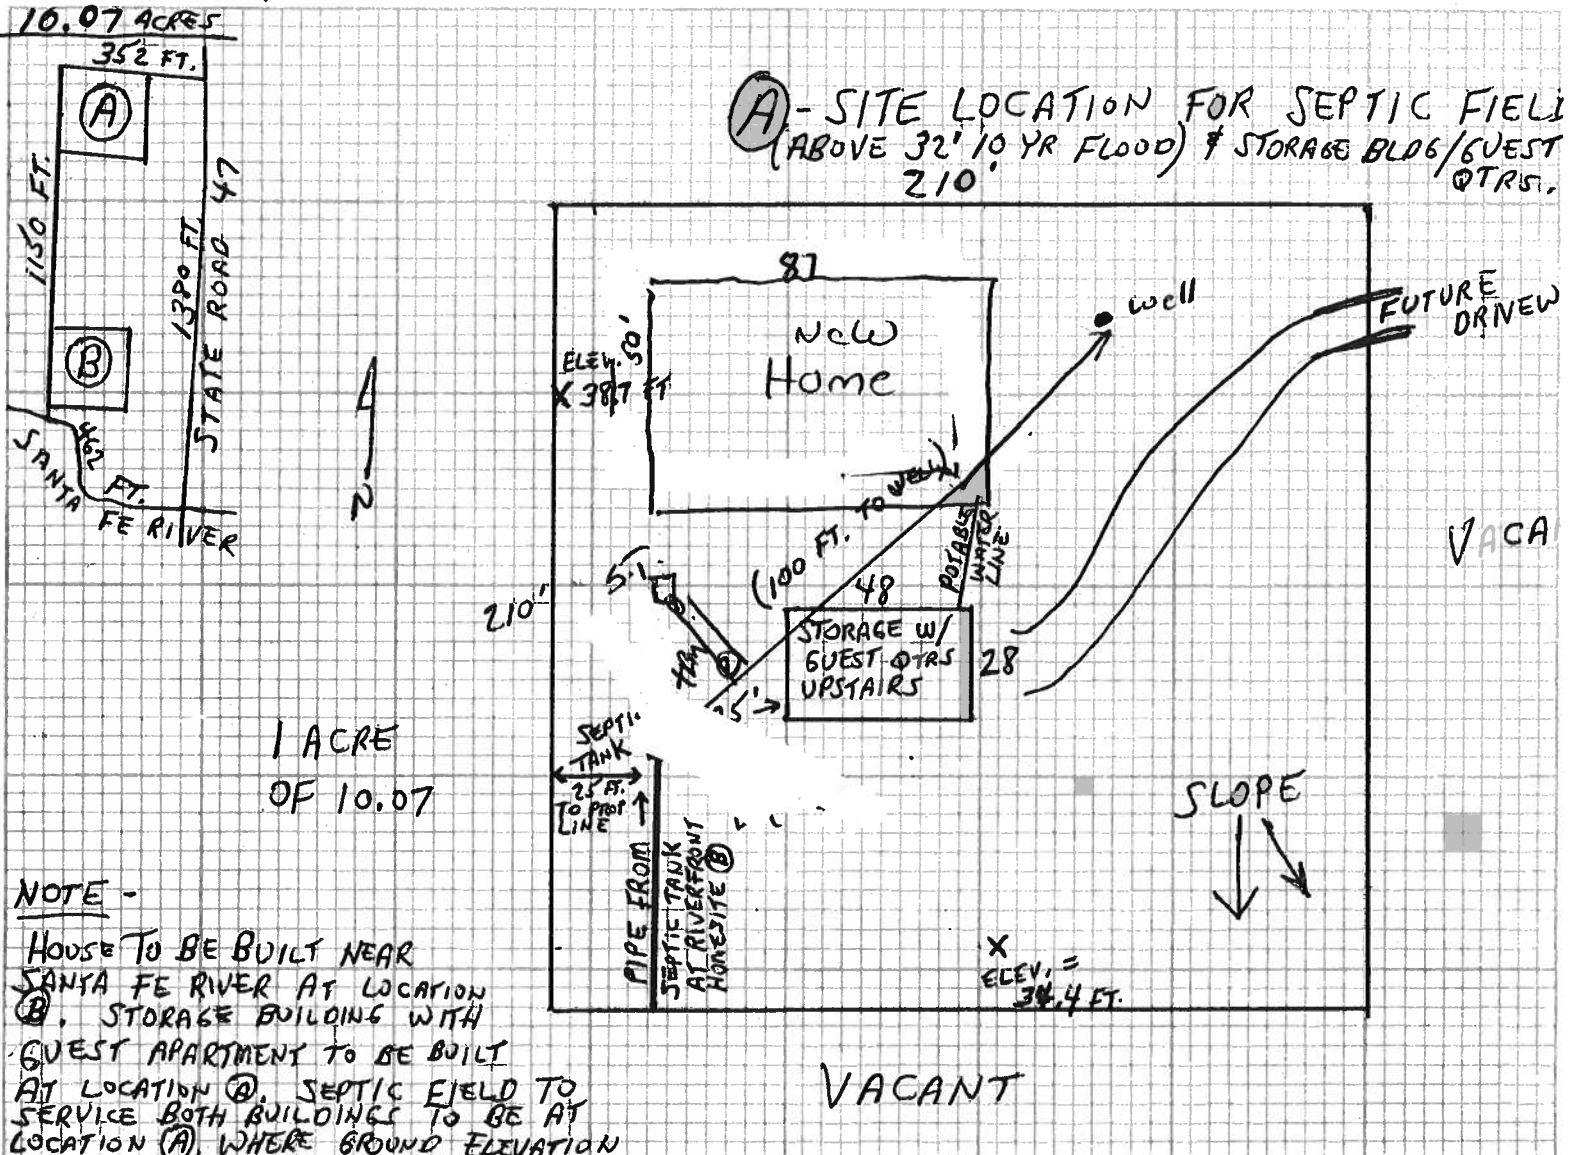 10.07 ACRES
352 FT.
A
1150 FT.
1380 FT.
STATE ROAD 47
B
462
FT.
SANTA
FE RIVER
N
A - SITE LOCATION FOR SEPTIC FIEL
(ABOVE 32' 10 YR FLOOD) & STORAGE BLDG/GUEST
QTRS.
210'
87
50'
New
Home
ELEV.
X 38.7 FT
well
FUTURE
DRIVEW
VACA
(100 FT. TO WELL)
POTABLE
WATER
LINE
210'
48
STORAGE W/
GUEST QTRS
UPSTAIRS
28
SEPTI
TANK
25 FT.
TO PROP
LINE
PIPE FROM
SEPTIC TANK
AT RIVERFRONT
HOMESITE B
SLOPE
X
ELEV. =
34.4 FT.
1 ACRE
OF 10.07
VACANT
NOTE -
HOUSE TO BE BUILT NEAR
SANTA FE RIVER AT LOCATION
B. STORAGE BUILDING WITH
GUEST APARTMENT TO BE BUILT
AT LOCATION A. SEPTIC FIELD TO
SERVICE BOTH BUILDINGS TO BE AT
LOCATION A, WHERE GROUND ELEVATION